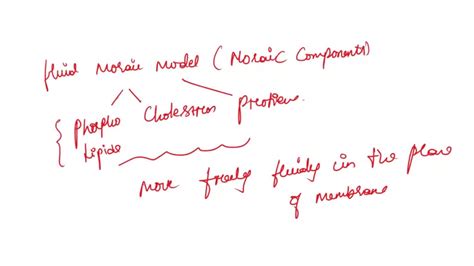 fluid Mosaic Model (Mosaic Components)
Phospho Cholestrol Protiens
Lipids
Move freely fluidly in the plane
of membrane